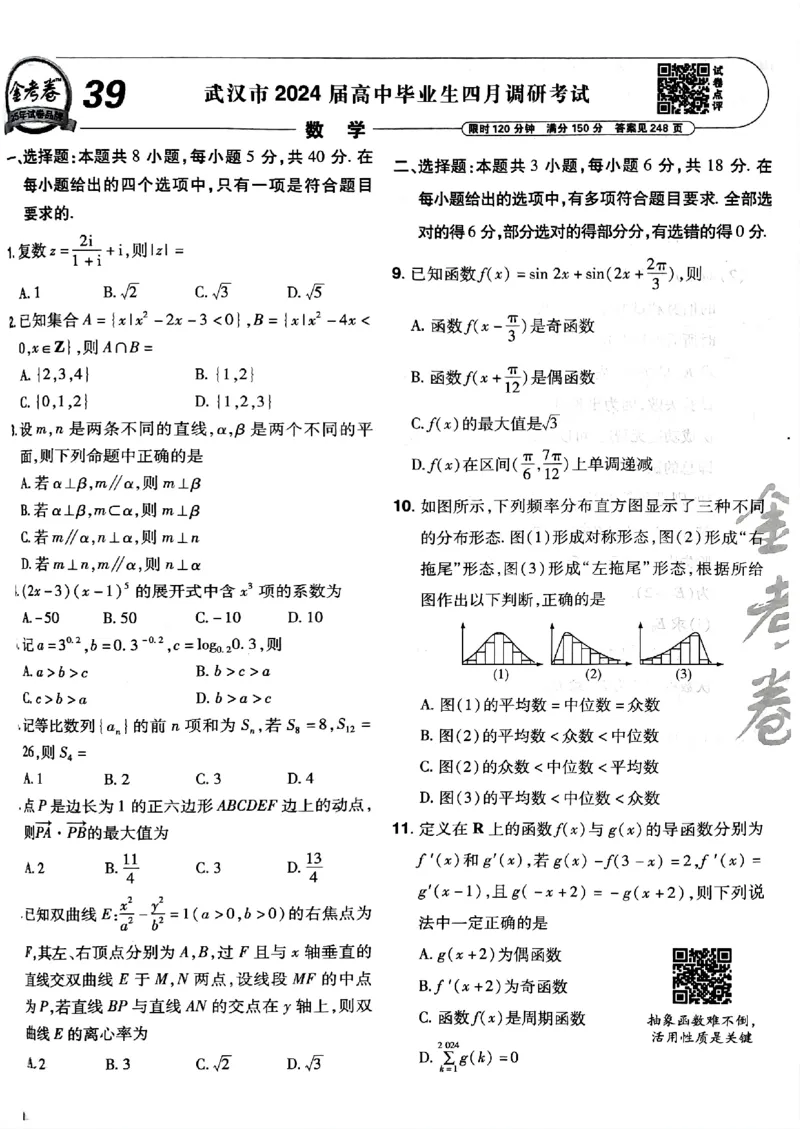 金考卷
25年试卷品牌
39
武汉市2024届高中毕业生四月调研考试
试卷点评
数 学
限时120分钟 满分150分 答案见248页
一、选择题:本题共8小题,每小题5分,共40分.在
每小题给出的四个选项中,只有一项是符合题目
要求的.
1.复数z=2i/(1+i)+i,则|z|=
A.1 B.√2 C.√3 D.√5
2.已知集合A={x|x²-2x-3<0},B={x|x²-4x<
0,x∈Z},则A∩B=
A.{2,3,4} B.{1,2}
C.{0,1,2} D.{1,2,3}
3.设m,n是两条不同的直线,α,β是两个不同的平
面,则下列命题中正确的是
A.若α⊥β,m∥α,则m⊥β
B.若α⊥β,m⊂α,则m⊥β
C.若m∥α,n⊥α,则m⊥n
D.若m⊥n,m∥α,则n⊥α
(2x-3)(x-1)⁵的展开式中含x³项的系数为
A.-50 B.50 C.-10 D.10
记a=3^0.2,b=0.3^-0.2,c=log₀.₂0.3,则
A.a>b>c B.b>c>a
C.c>b>a D.b>a>c
记等比数列{aₙ}的前n项和为Sₙ,若S₈=8,S₁₂=
26,则S₄=
A.1 B.2 C.3 D.4
点P是边长为1的正六边形ABCDEF边上的动点,
则PA·PB的最大值为
A.2 B.11/4 C.3 D.13/4
已知双曲线E:x²/a²-y²/b²=1(a>0,b>0)的右焦点为
F,其左、右顶点分别为A,B,过F且与x轴垂直的
直线交双曲线E于M,N两点,设线段MF的中点
为P,若直线BP与直线AN的交点在y轴上,则双
曲线E的离心率为
A.2 B.3 C.√2 D.√3
二、选择题:本题共3小题,每小题6分,共18分.在
每小题给出的选项中,有多项符合题目要求.全部选
对的得6分,部分选对的得部分分,有选错的得0分.
9.已知函数f(x)=sin 2x+sin(2x+2π/3),则
A.函数f(x-π/3)是奇函数
B.函数f(x+π/12)是偶函数
C.f(x)的最大值是√3
D.f(x)在区间(π/6,7π/12)上单调递减
10.如图所示,下列频率分布直方图显示了三种不同
的分布形态.图(1)形成对称形态,图(2)形成“右
拖尾”形态,图(3)形成“左拖尾”形态,根据所给
图作出以下判断,正确的是
(1) (2) (3)
A.图(1)的平均数=中位数=众数
B.图(2)的平均数<众数<中位数
C.图(2)的众数<中位数<平均数
D.图(3)的平均数<中位数<众数
11.定义在R上的函数f(x)与g(x)的导函数分别为
f′(x)和g′(x),若g(x)-f(3-x)=2,f′(x)=
g′(x-1),且g(-x+2)=-g(x+2),则下列说
法中一定正确的是
A.g(x+2)为偶函数
B.f′(x+2)为奇函数
C.函数f(x)是周期函数
D.∑_{k=1}^{2024}g(k)=0
抽象函数难不倒,
活用性质是关键
金考卷